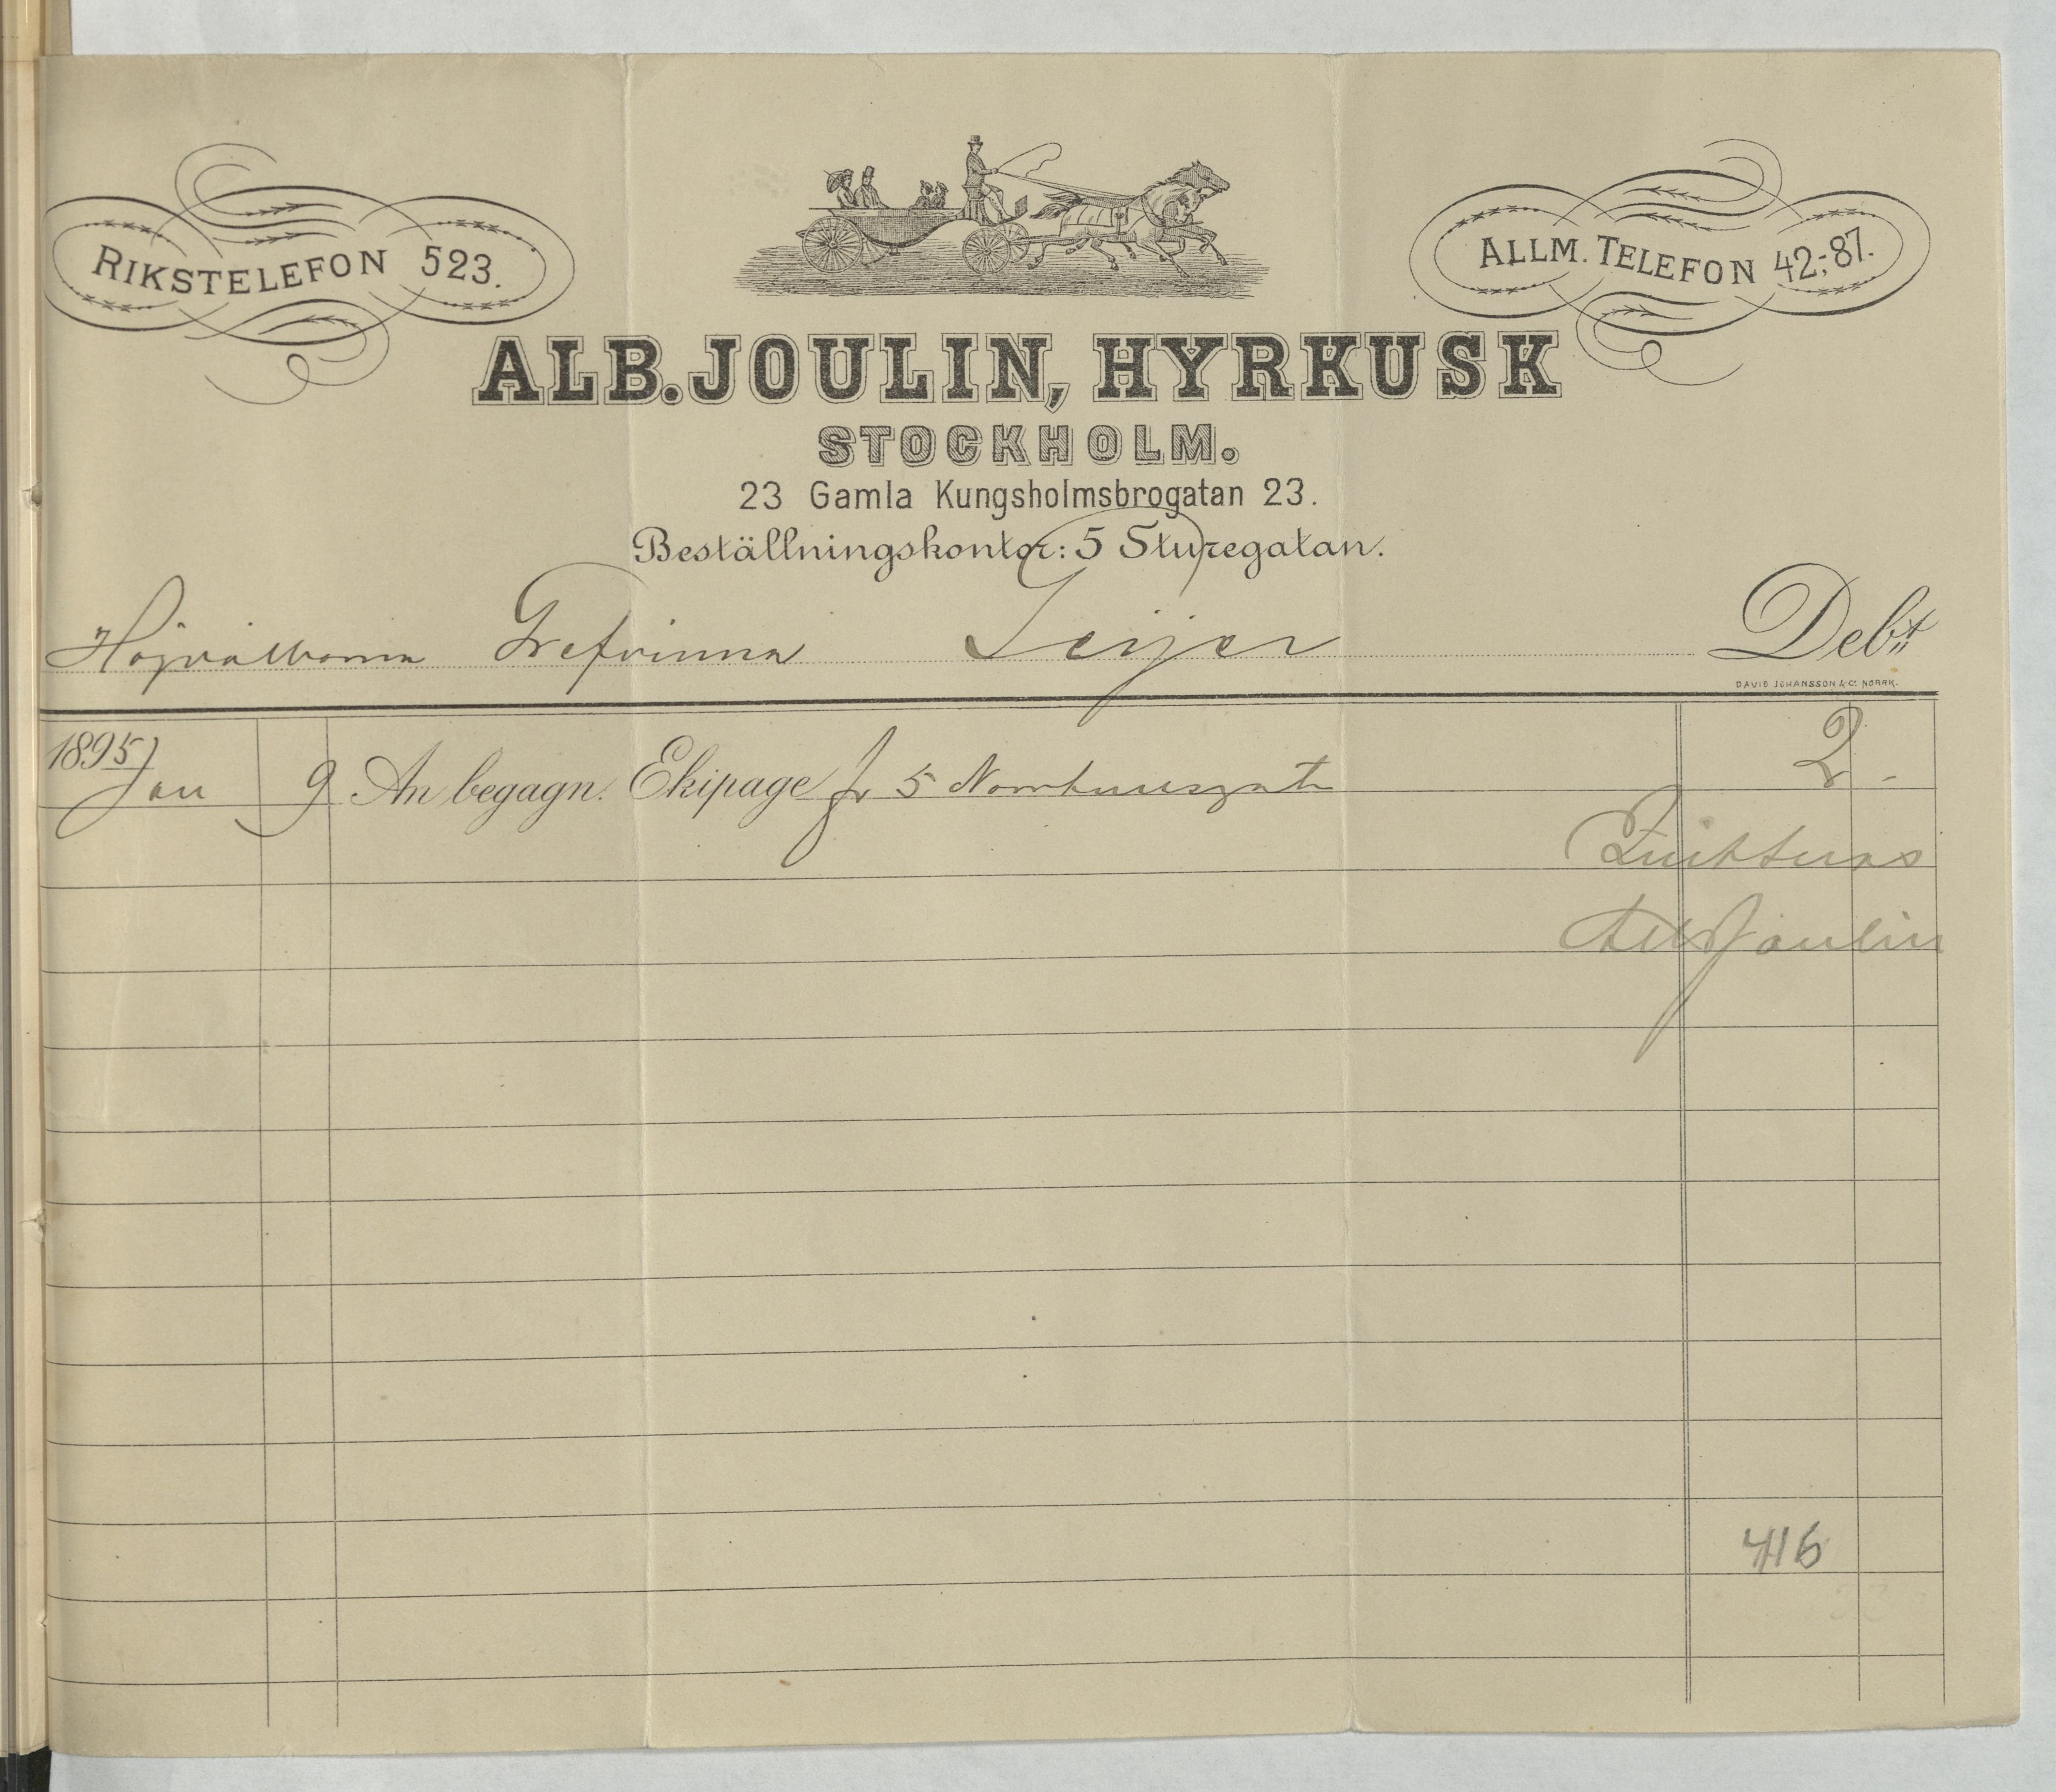 RIKSTELEFON 523.
ALLM. TELEFON 42,-87.
ALB. JOULIN, HYRKUSK
STOCKHOLM.
23 Gamla Kungsholmsbrogatan 23.
Beställningskontor: 5 Sturegatan.
Högvälborna Grefvinna Geijer Debt
DAVID JOHANSSON & C. NORRK.
1895
Jan 9 An begagn. Ekipage fr 5 2 -
Quitteras
Alb Joulin
416